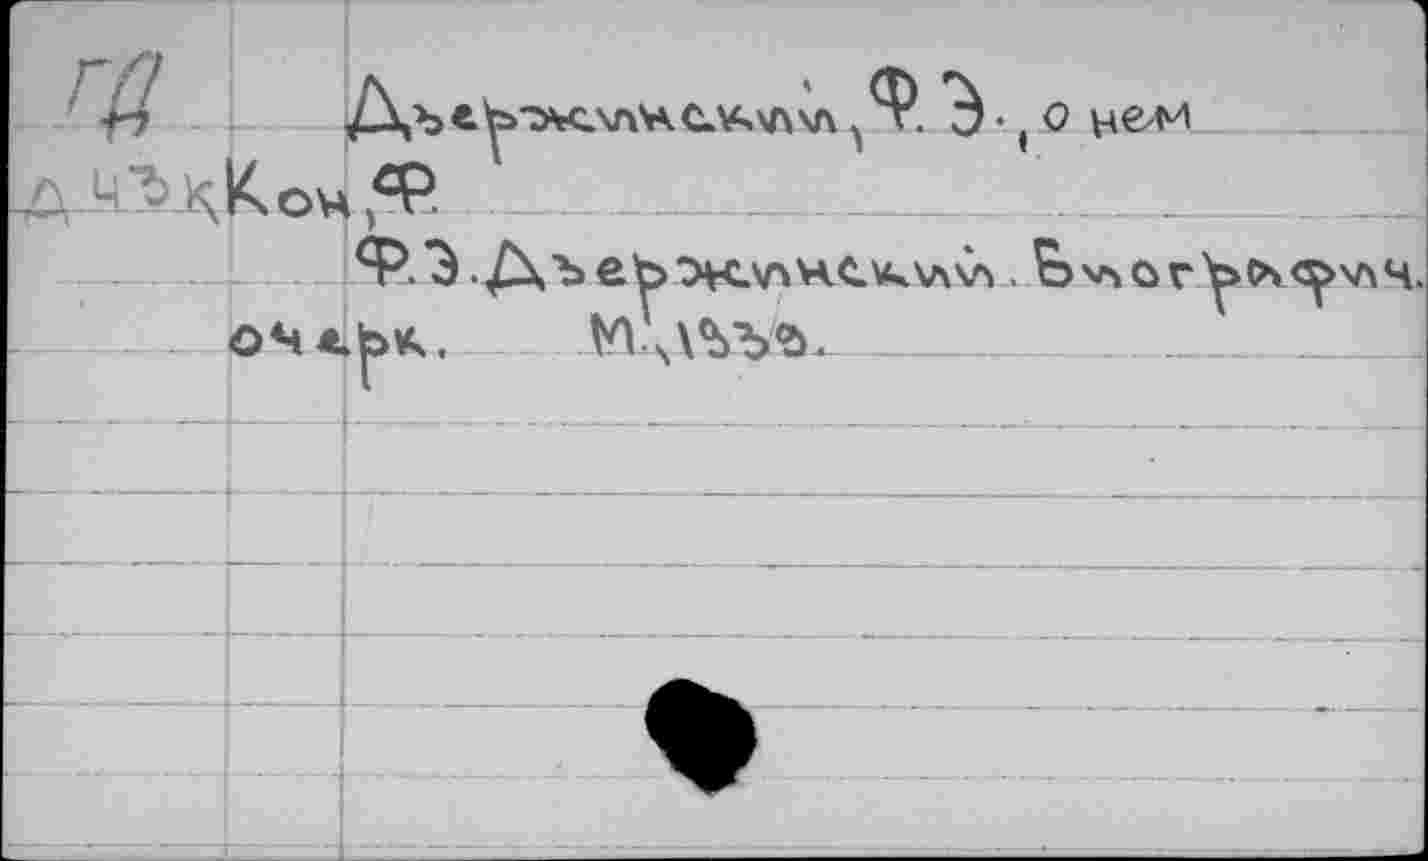 ГД Дзержинский, Ф. Э., о нем
Кон, Ф.
Ф. Э. Дзержинский. Биографич.
очерк. М., 1933.